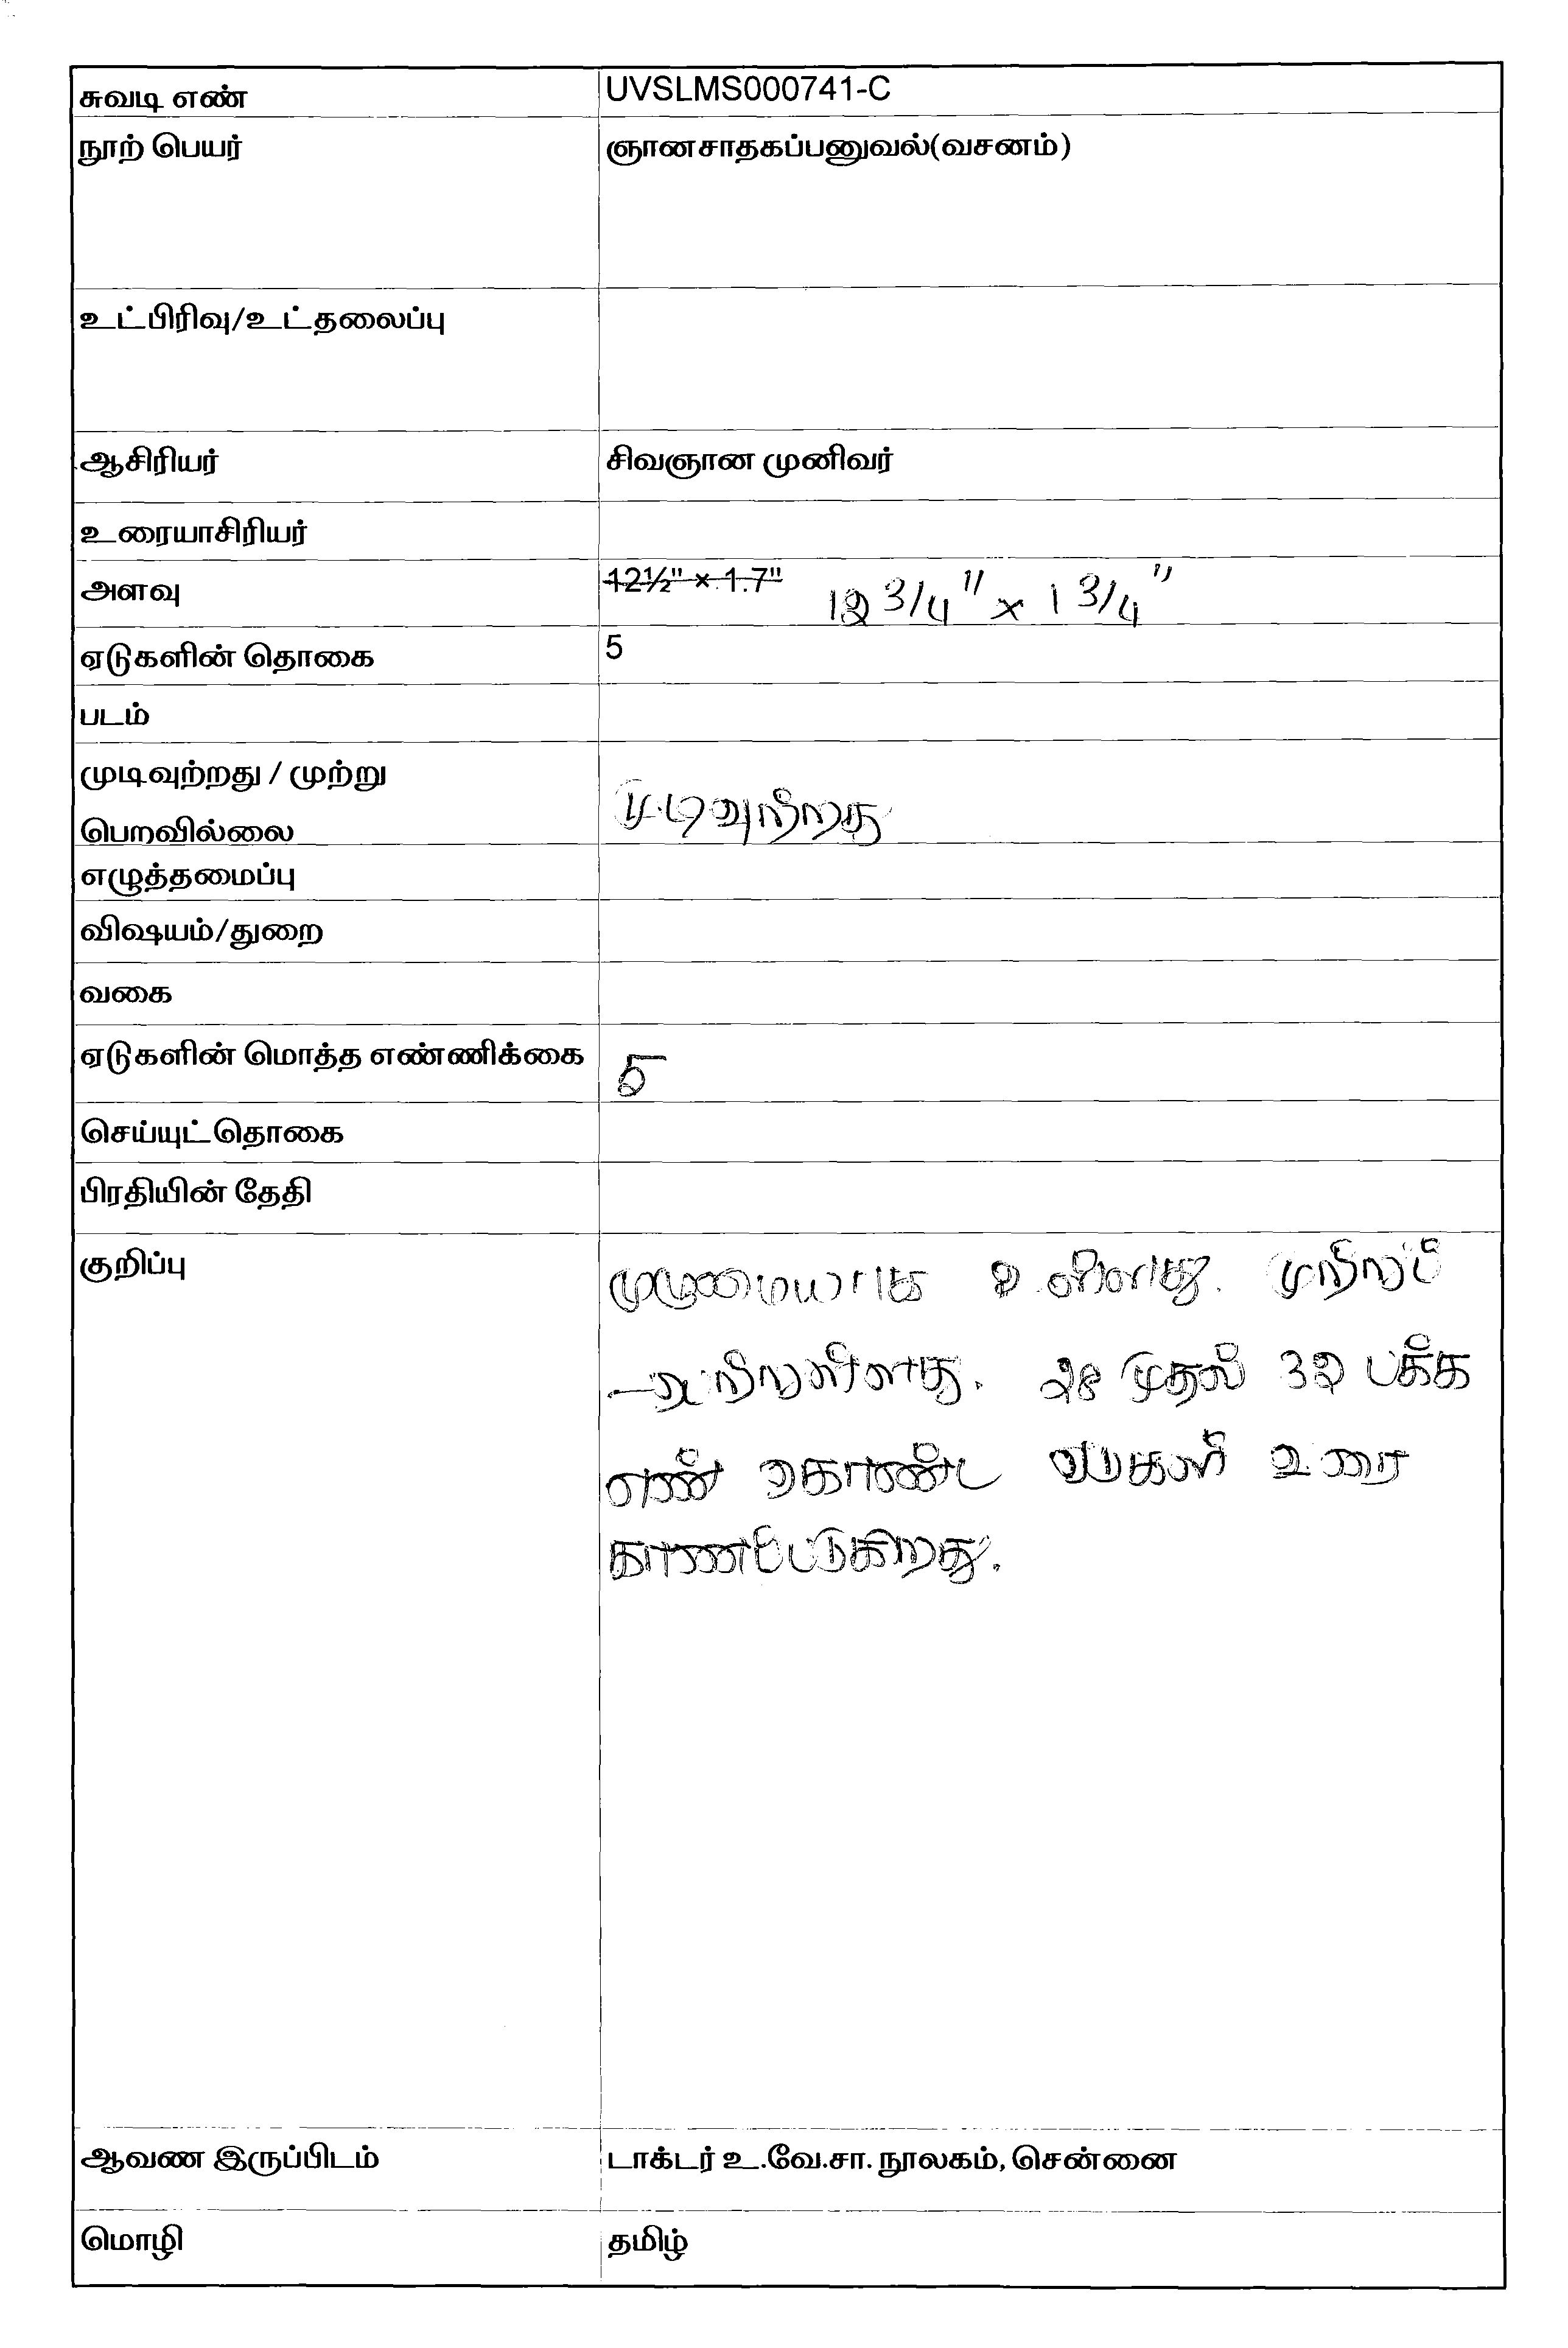 சுவடி எண் UVSLMS000741-C
நூற் பெயர் ஞானசாதகப்பனுவல்(வசனம்)
உட்பிரிவு/உட்தலைப்பு
ஆசிரியர் சிவஞான முனிவர்
உரையாசிரியர்
அளவு 12½" × 1.7" 12 3/4" x 1 3/4"
ஏடுகளின் தொகை 5
படம்
முடிவுற்றது / முற்று
பெறவில்லை முடிவுற்றது
எழுத்தமைப்பு
விஷயம்/துறை
வகை
ஏடுகளின் மொத்த எண்ணிக்கை 5
செய்யுட்தொகை
பிரதியின் தேதி
குறிப்பு முழுமையாக உள்ளது. முற்றுப்
பெற்றுள்ளது. 28 முதல் 32 பக்க
எண் கொண்ட உரை
காணப்படுகிறது.
ஆவண இருப்பிடம் டாக்டர் உ.வே.சா. நூலகம், சென்னை
மொழி தமிழ்